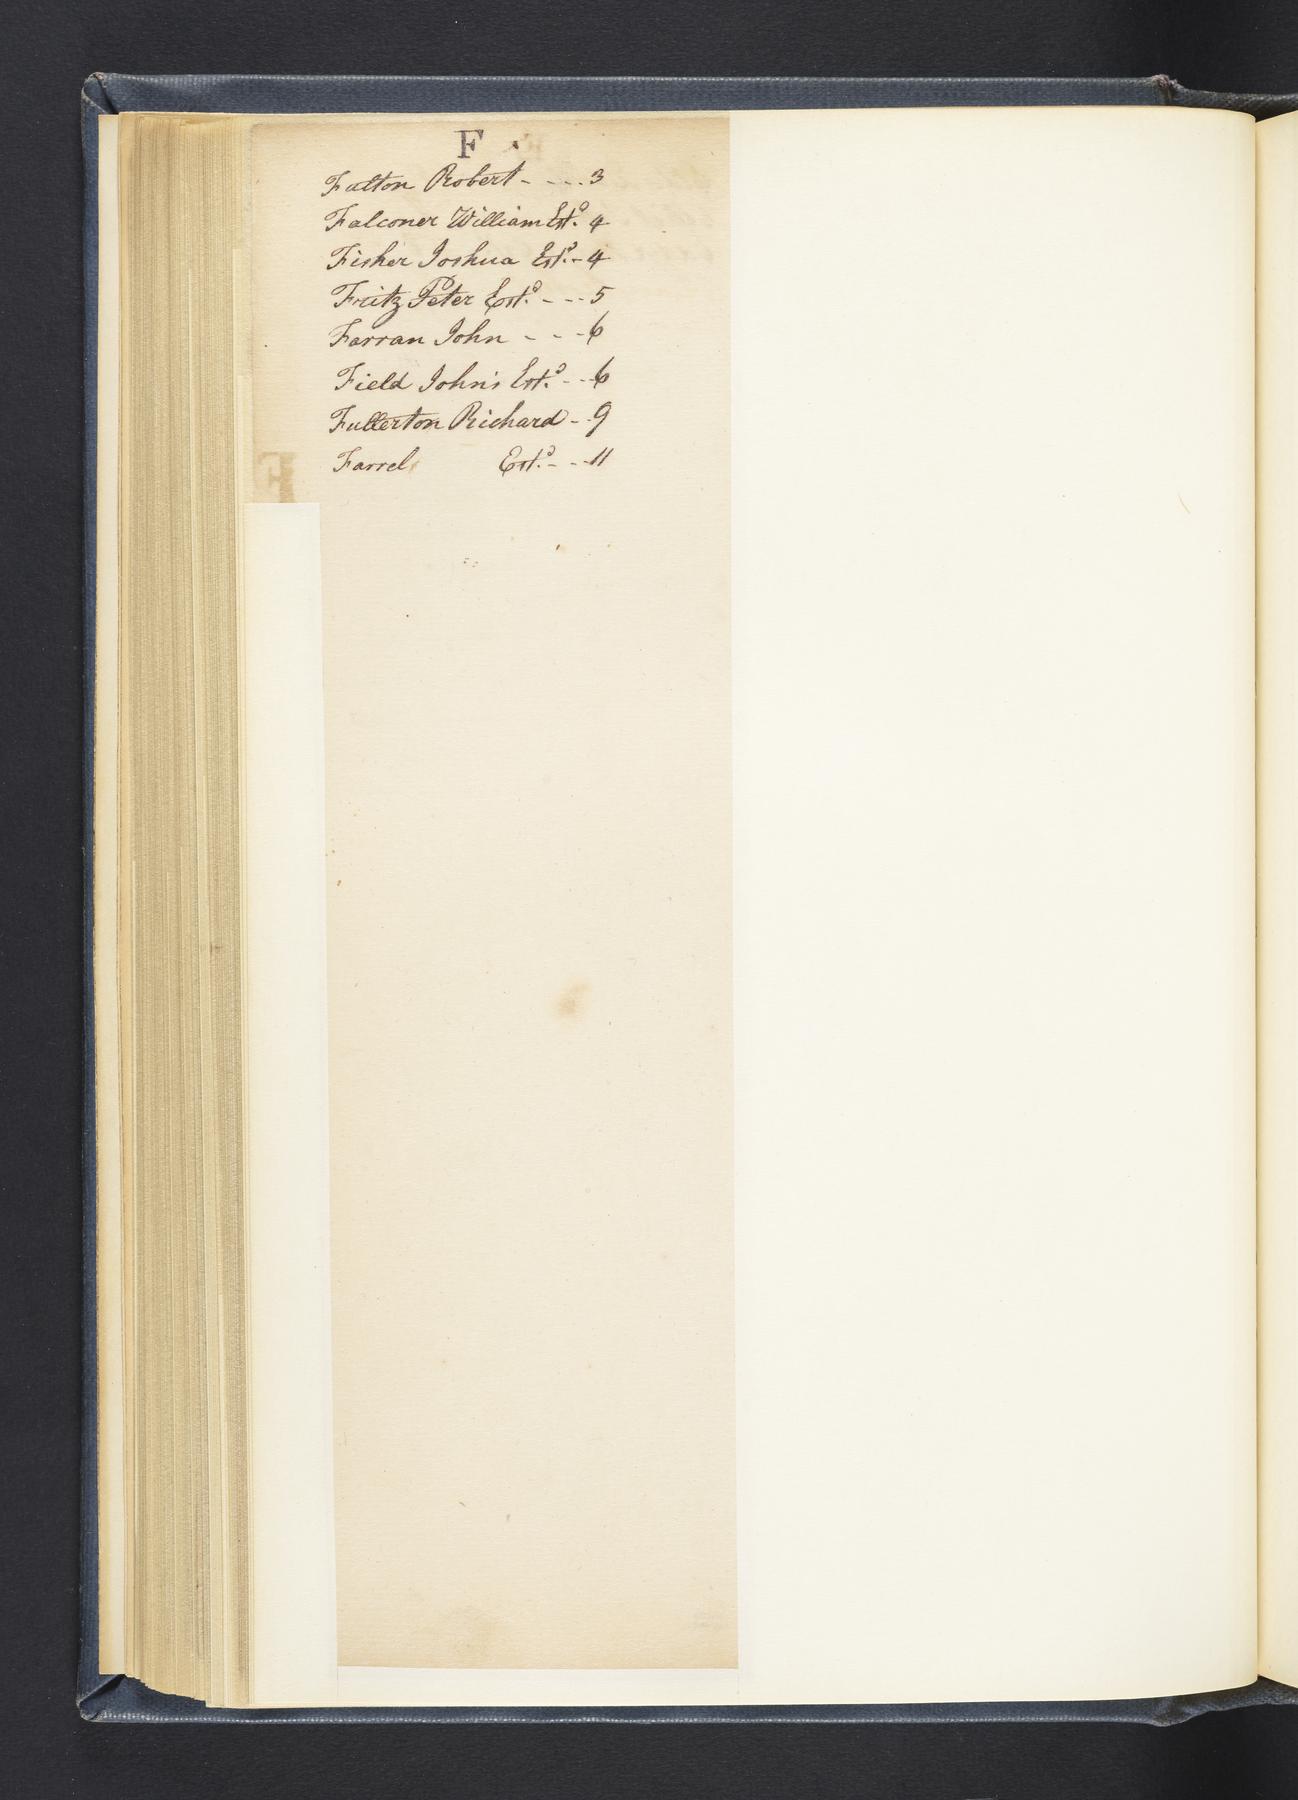 F
Fulton Robert - - - - 3
Falconer William Esto. 4
Fisher Joshua Esto. - 4
Fritz Peter Esto. - - - 5
Farran John - - - 6
Field John's Esto. - - - 6
Fullerton Richard - - 9
Farrel Esto. - - - 11